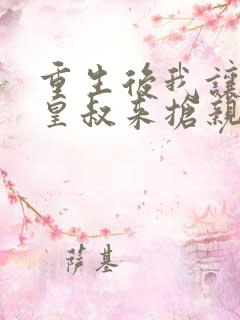 重生後我讓
皇叔來搶親
萨基